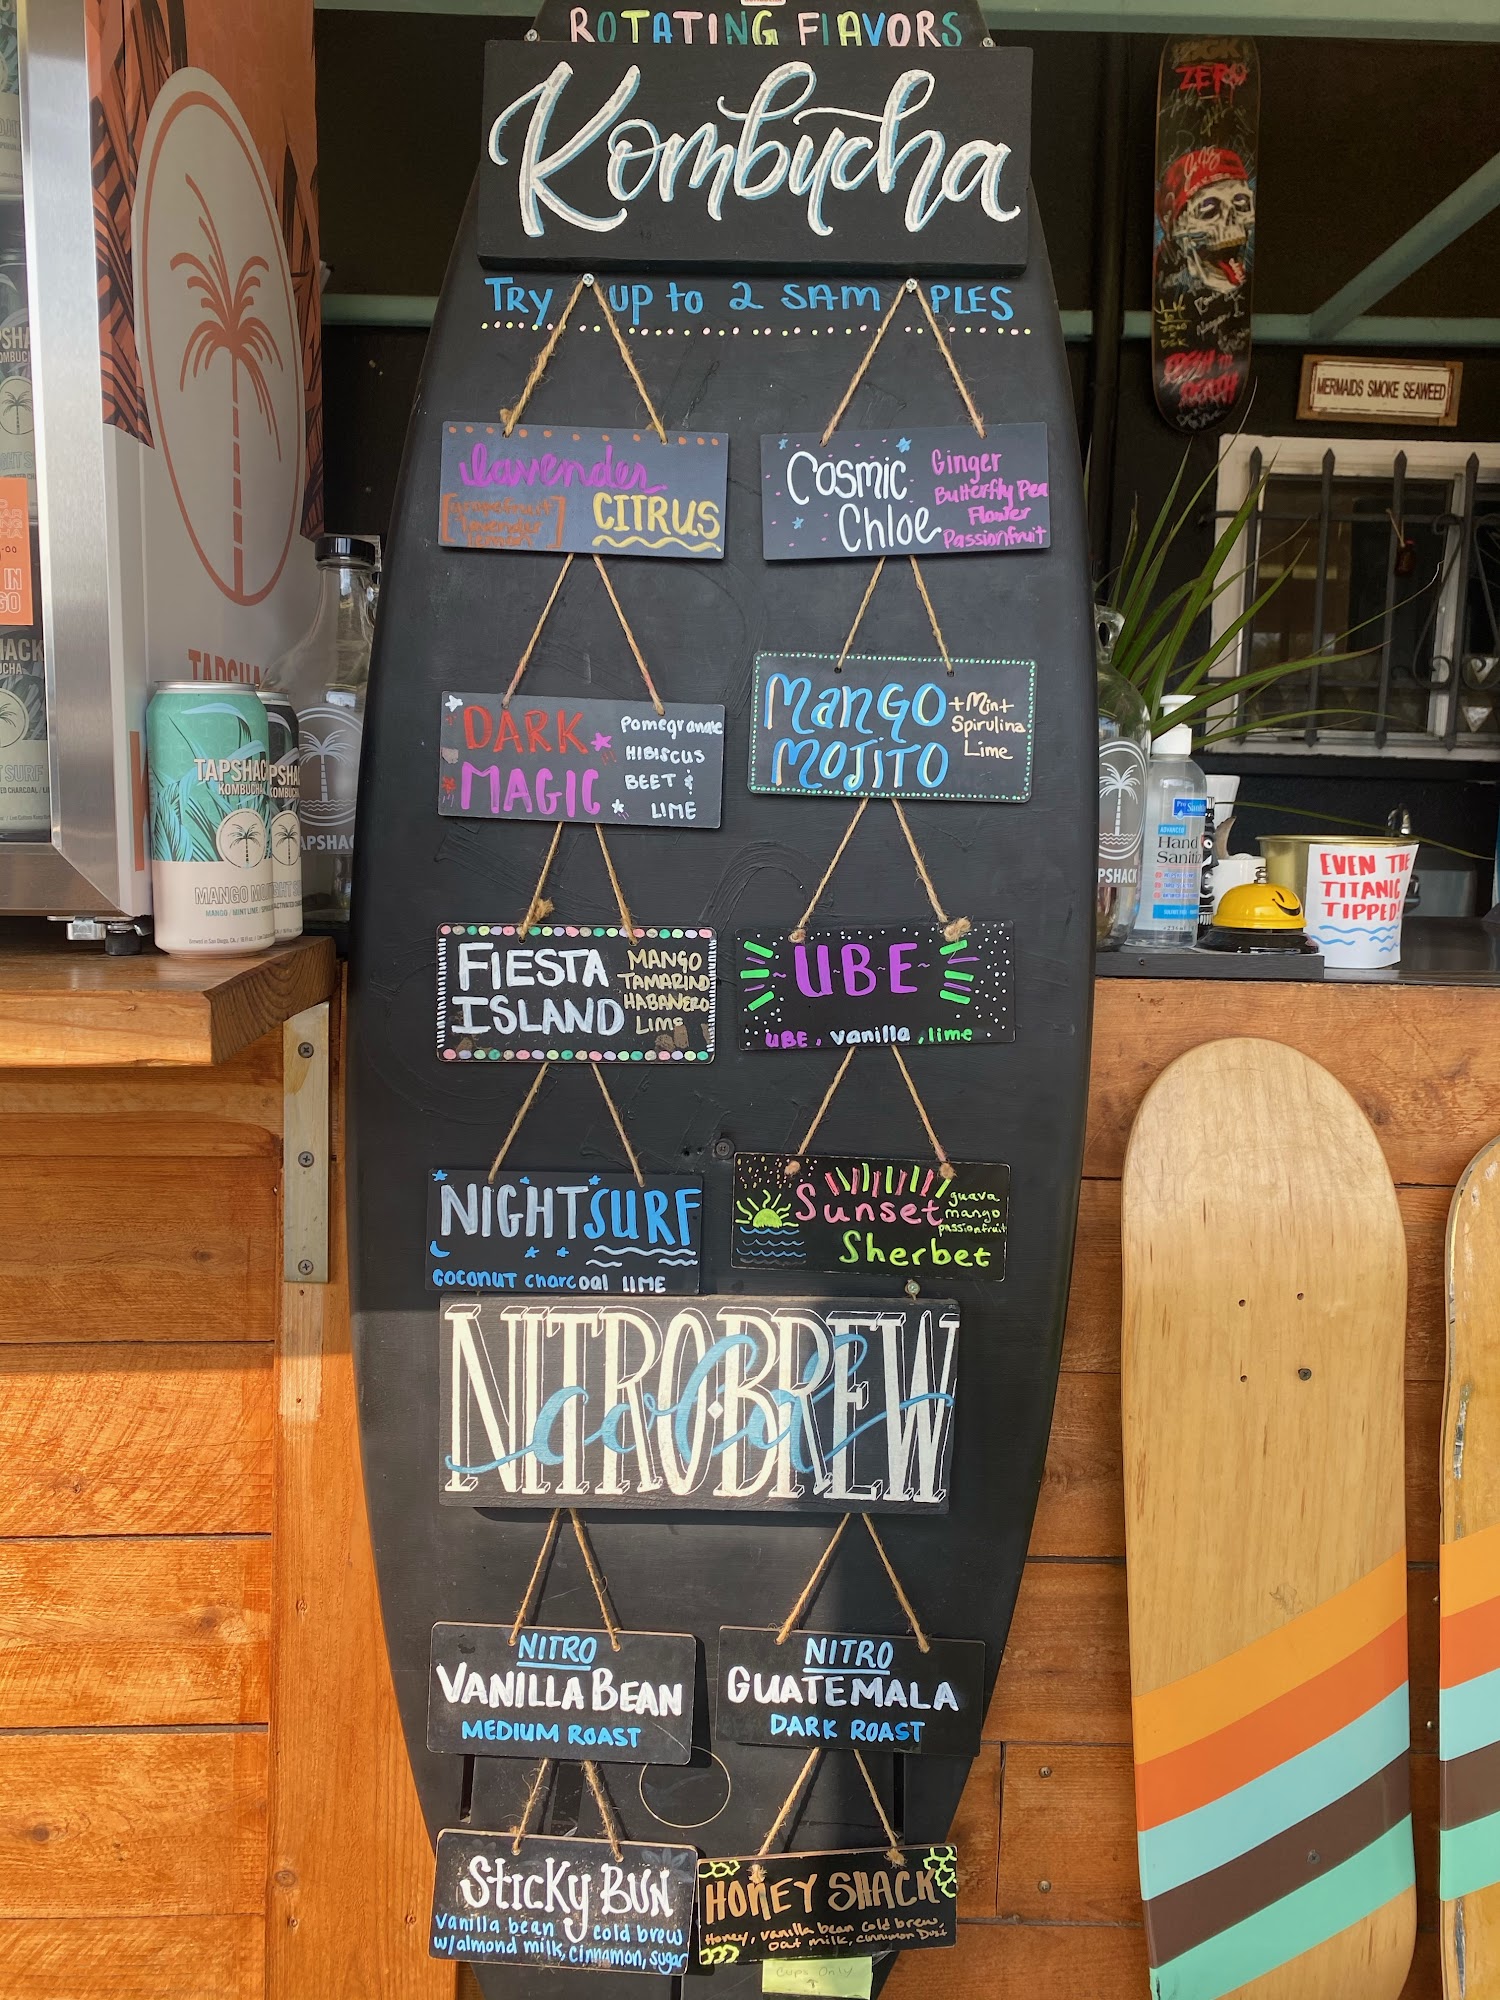 ROTATING FLAVORS
Kombucha
TRY UP to 2 SAMPLES
lavender
CITRUS
[grapefruit
lavender
lemon]
COSMIC
CHLOE
Ginger
Butterfly Pea
Flower
Passionfruit
DARK
MAGIC
Pomegranate
HIBISCUS
BEET &
LIME
MANGO
MOJITO
+Mint
Spirulina
Lime
FIESTA
ISLAND
MANGO
TAMARIND
HABANERO
LIME
U~B~E
UBE, vanilla, lime
NIGHT SURF
COCONUT CHARCOAL LIME
Sunset
Sherbet
guava
mango
passionfruit
NITRO·BREW
cold
NITRO
VANILLA BEAN
MEDIUM ROAST
NITRO
GUATEMALA
DARK ROAST
STICKY BUN
vanilla bean cold brew
w/almond milk, cinnamon, sugar
HONEY SHACK
Honey, vanilla bean cold brew,
oat milk, cinnamon Dust
Cups Only
ZERO
FRESH TO
DEATH
MERMAIDS SMOKE SEAWEED
EVEN THE
TITANIC
TIPPED!
ADVANCED
Hand
Saniti
TAPSHACK
KOMBUCHA
MANGO MO
TAPSHA
APSHACK